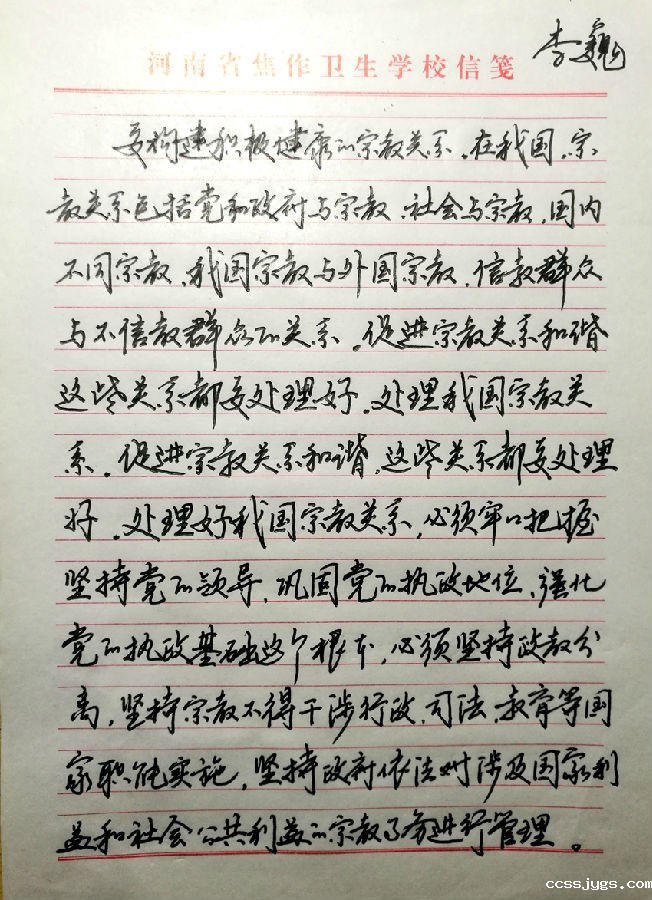 李巍
河南省焦作卫生学校信笺
要构建积极健康的宗教关系。在我国,宗
教关系包括党和政府与宗教、社会与宗教、国内
不同宗教、我国宗教与外国宗教、信教群众
与不信教群众的关系。促进宗教关系和谐
这些关系都要处理好。处理我国宗教关
系。促进宗教关系和谐,这些关系都要处理
好。处理好我国宗教关系,必须牢牢把握
坚持党的领导、巩固党的执政地位、强化
党的执政基础这个根本,必须坚持政教分
离,坚持宗教不得干涉行政、司法、教育等国
家职能实施,坚持政府依法对涉及国家利
益和社会公共利益的宗教事务进行管理。
ccssjygs.com